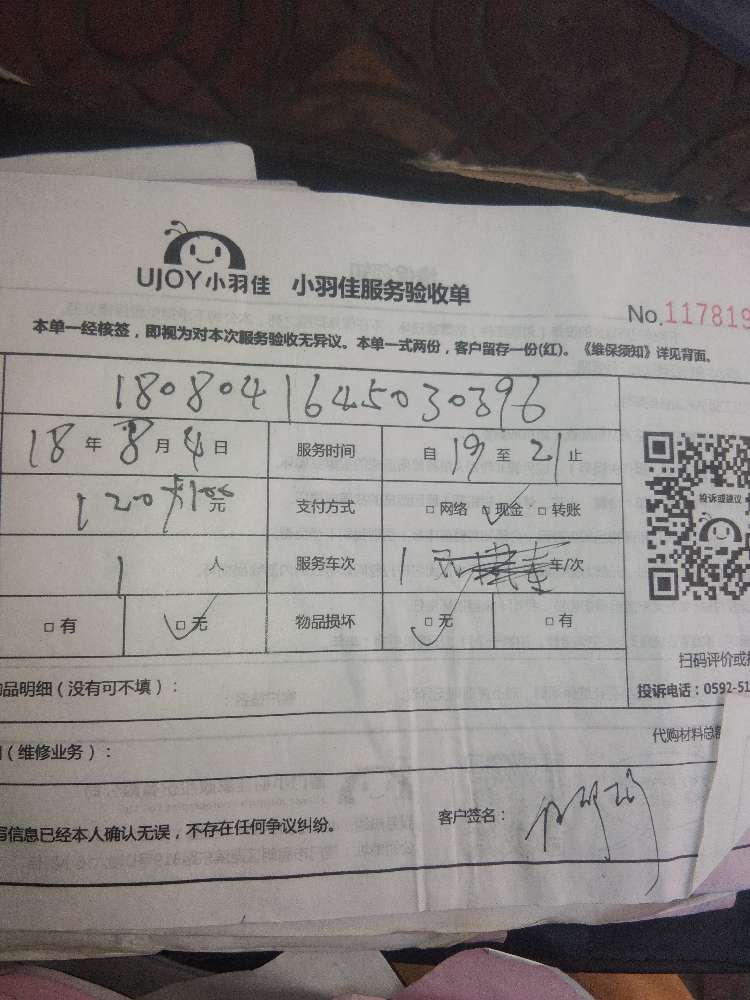 UJOY小羽佳 小羽佳服务验收单
No.117819
本单一经核签，即视为对本次服务验收无异议。本单一式两份，客户留存一份(红)。《维保须知》详见背面。
1808041645030396
18年8月4日 服务时间 自19至21止
120 元 支付方式 □网络 □现金 □转账
投诉或建议
1人 服务车次 1 车/次
□有 □无 物品损坏 □无 □有
扫码评价或
品明细（没有可不填）：
投诉电话：0592-51
（维修业务）：
代购材料总
信息已经本人确认无误，不存在任何争议纠纷。
客户签名：